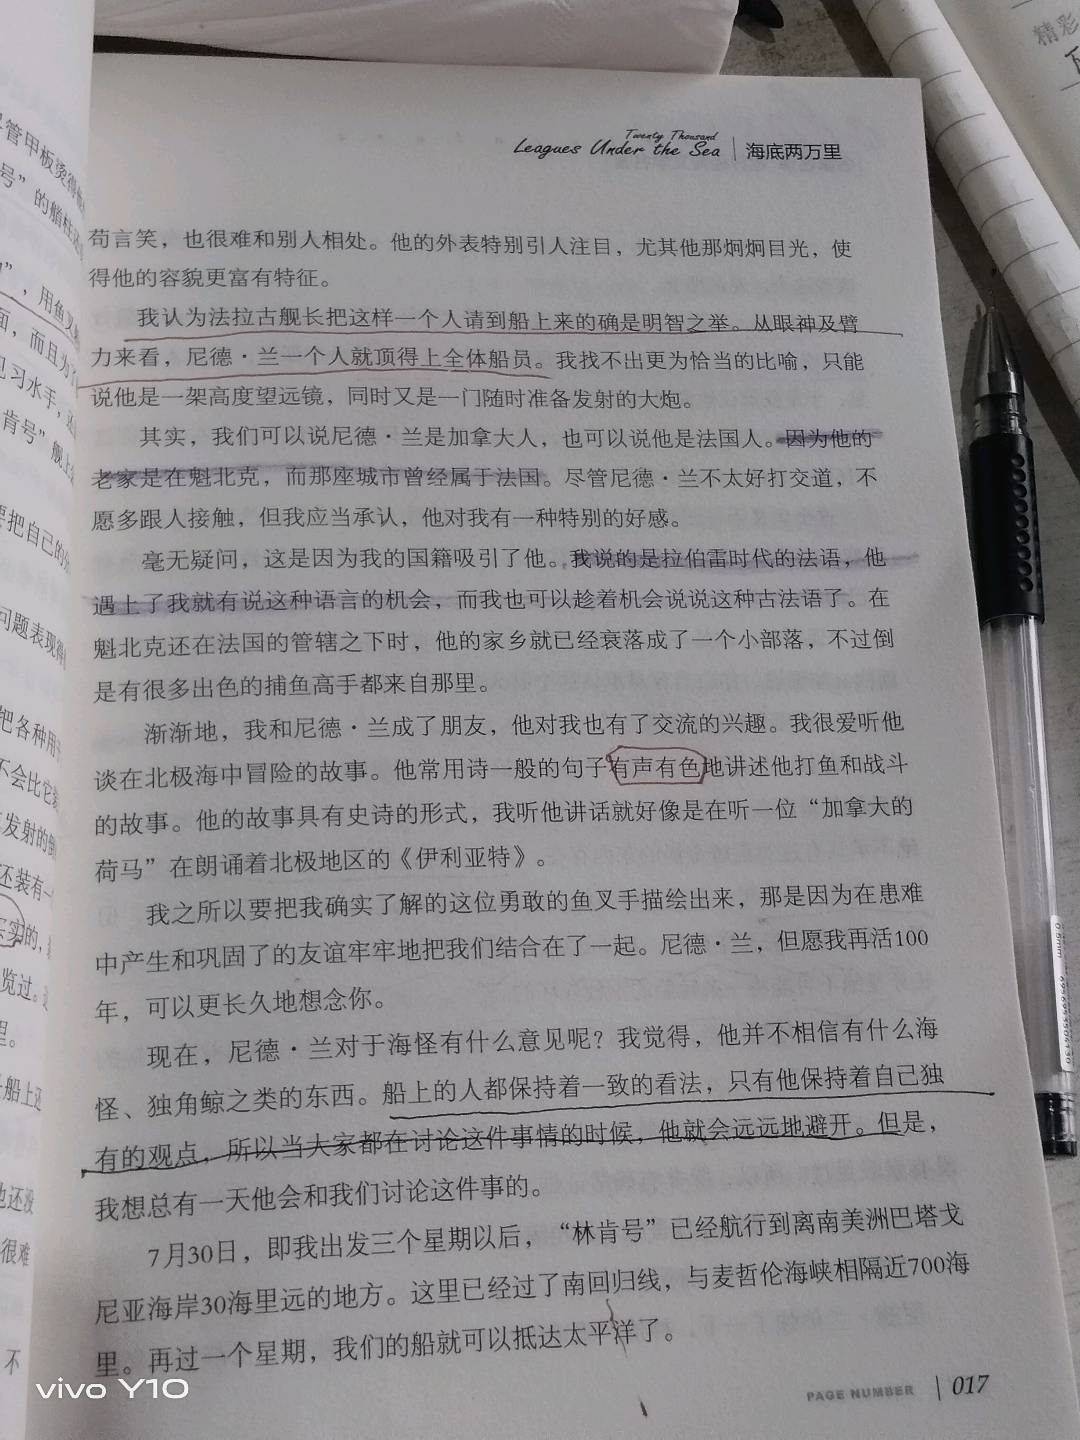 Twenty Thousand
Leagues Under the Sea | 海底两万里
苟言笑，也很难和别人相处。他的外表特别引人注目，尤其他那炯炯目光，使
得他的容貌更富有特征。
我认为法拉古舰长把这样一个人请到船上来的确是明智之举。从眼神及臂
力来看，尼德·兰一个人就顶得上全体船员。我找不出更为恰当的比喻，只能
说他是一架高度望远镜，同时又是一门随时准备发射的大炮。
其实，我们可以说尼德·兰是加拿大人，也可以说他是法国人。因为他的
老家是在魁北克，而那座城市曾经属于法国。尽管尼德·兰不太好打交道，不
愿多跟人接触，但我应当承认，他对我有一种特别的好感。
毫无疑问，这是因为我的国籍吸引了他。我说的是拉伯雷时代的法语，他
遇上了我就有说这种语言的机会，而我也可以趁着机会说说这种古法语了。在
魁北克还在法国的管辖之下时，他的家乡就已经衰落成了一个小部落，不过倒
是有很多出色的捕鱼高手都来自那里。
渐渐地，我和尼德·兰成了朋友，他对我也有了交流的兴趣。我很爱听他
谈在北极海中冒险的故事。他常用诗一般的句子有声有色地讲述他打鱼和战斗
的故事。他的故事具有史诗的形式，我听他讲话就好像是在听一位“加拿大的
荷马”在朗诵着北极地区的《伊利亚特》。
我之所以要把我确实了解的这位勇敢的鱼叉手描绘出来，那是因为在患难
中产生和巩固了的友谊牢牢地把我们结合在了一起。尼德·兰，但愿我再活100
年，可以更长久地想念你。
现在，尼德·兰对于海怪有什么意见呢？我觉得，他并不相信有什么海
怪、独角鲸之类的东西。船上的人都保持着一致的看法，只有他保持着自己独
有的观点，所以当大家都在讨论这件事情的时候，他就会远远地避开。但是，
我想总有一天他会和我们讨论这件事的。
7月30日，即我出发三个星期以后，“林肯号”已经航行到离南美洲巴塔戈
尼亚海岸30海里远的地方。这里已经过了南回归线，与麦哲伦海峡相隔近700海
里。再过一个星期，我们的船就可以抵达太平洋了。
PAGE NUMBER | 017
vivo Y10
管甲板烫得
号”的艏柱
，用鱼叉
面，而且为了
见习水手，
肯号”舰上
要把自己的
问题表现得
把各种用
不会比它
发射的
还装有一
实的，
览过。
里。
船上还
也还没
很难
不
精彩